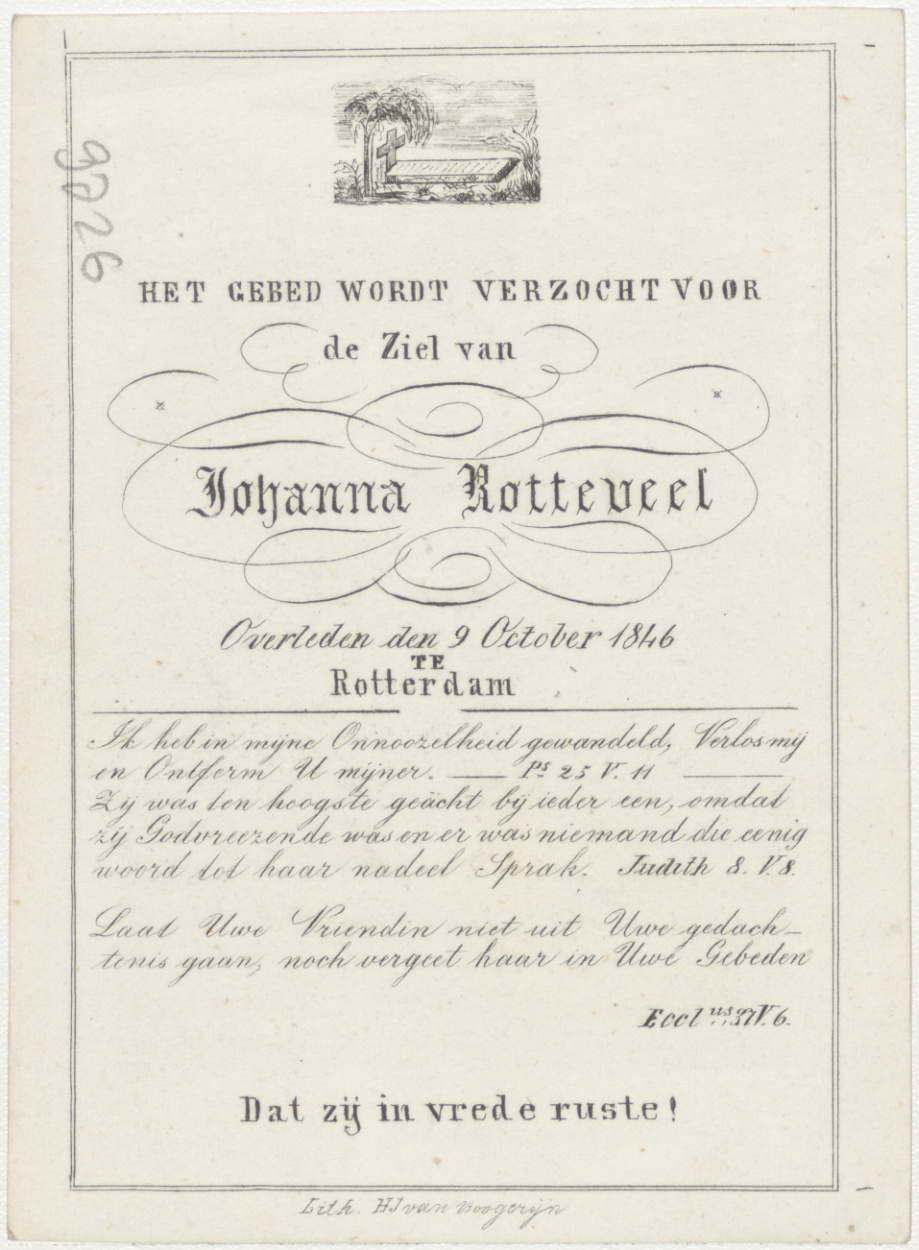 9726
HET GEBED WORDT VERZOCHT VOOR
de Ziel van
Johanna Rotteveel
Overleden den 9 October 1846
TE
Rotterdam
Ik heb in mijne Onnoozelheid gewandeld, Verlos mij
en Ontferm U mijner. — Ps 25 V. 11 —
Zij was ten hoogste geächt bij ieder een, omdat
zij Godvreezende was en er was niemand die eenig
woord tot haar nadeel Sprak. Judith 8. V. 8.
Laat Uwe Vriendin niet uit Uwe gedach-
tenis gaan, noch vergeet haar in Uwe Gebeden
Eccl us 37 V. 6.
Dat zij in vrede ruste!
Lith. HJ van